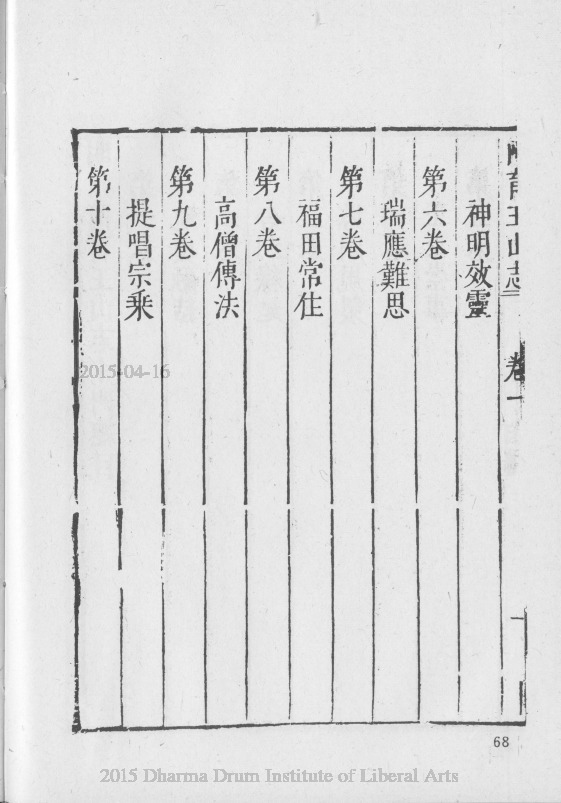 阿育王山志 卷一
神明效靈
第六卷
瑞應難思
第七卷
福田常住
第八卷
高僧傳法
第九卷
提唱宗乘
第十卷
2015-04-16
68
2015 Dharma Drum Institute of Liberal Arts